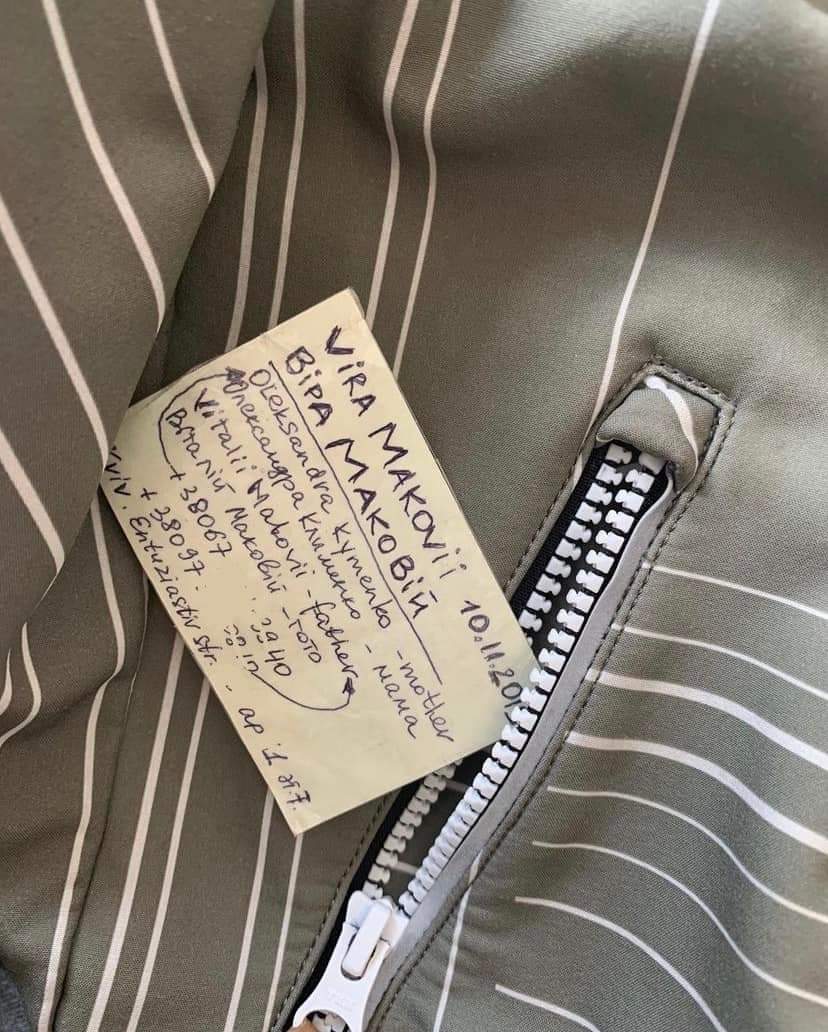 VIRA MAKOVII 10.11.20
ВІРА МАКОВІЙ
Oleksandra Kymenko - mother
Олександра Клименко - мама
Vitalii Makovii - father
Віталій Маковій - тато
+38067 40
+38097
Entuziastiv str. ap